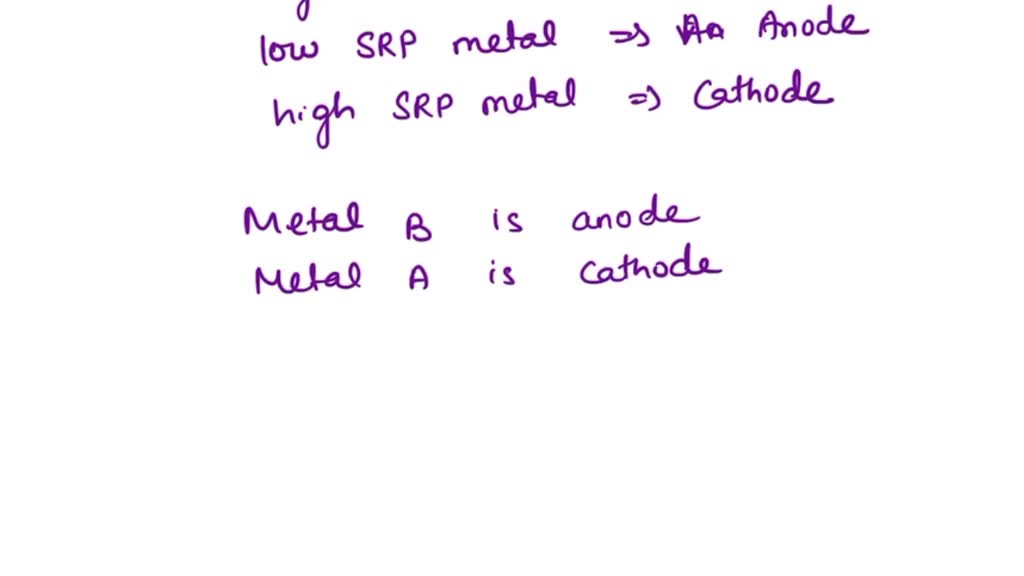 low SRP metal => Anode
high SRP metal => Cathode
Metal B is anode
Metal A is Cathode